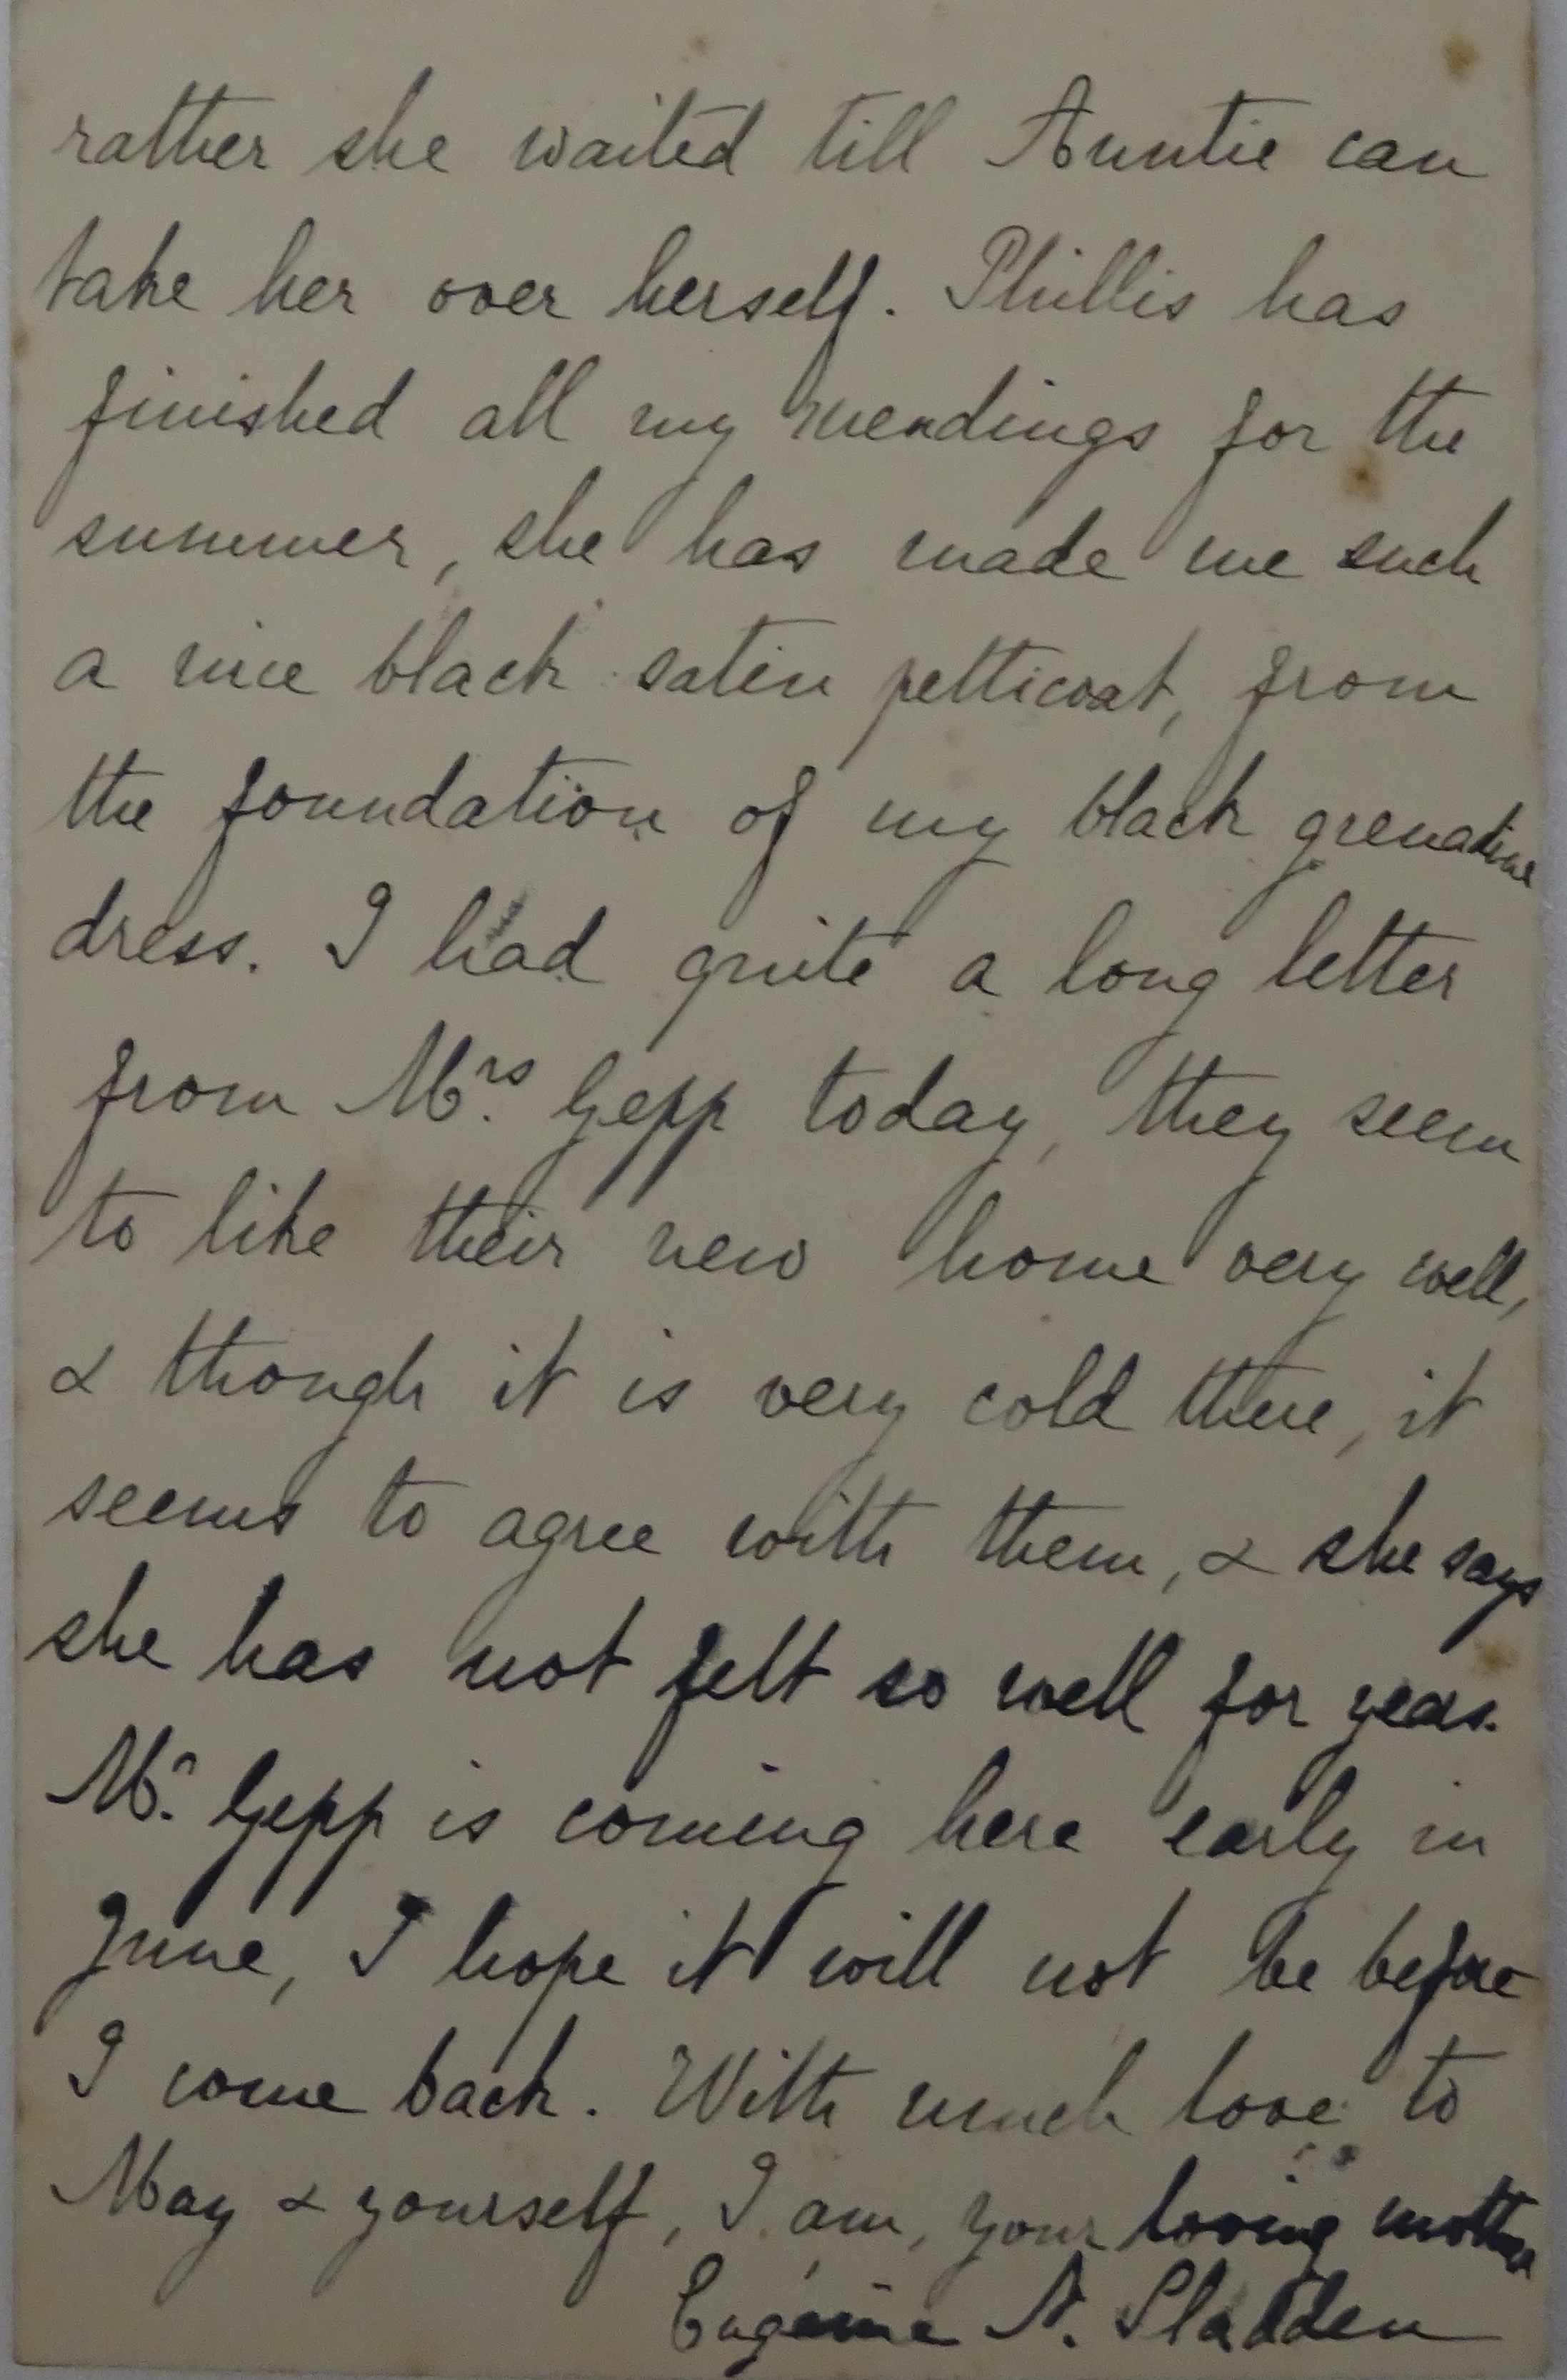 rather she waited till Auntie can
take her over herself. Phillis has
finished all my mendings for the
summer, she has made me such
a nice black satin petticoat, from
the foundation of my black grenadine
dress. I had quite a long letter
from Mrs. Gepp today, they seem
to like their new home very well,
& though it is very cold there, it
seems to agree with them, & she says
she has not felt so well for years.
Mr. Gepp is coming here early in
June, I hope it will not be before
I come back. With much love to
May & yourself, I am, your loving mother
Eugénie N. Sladden